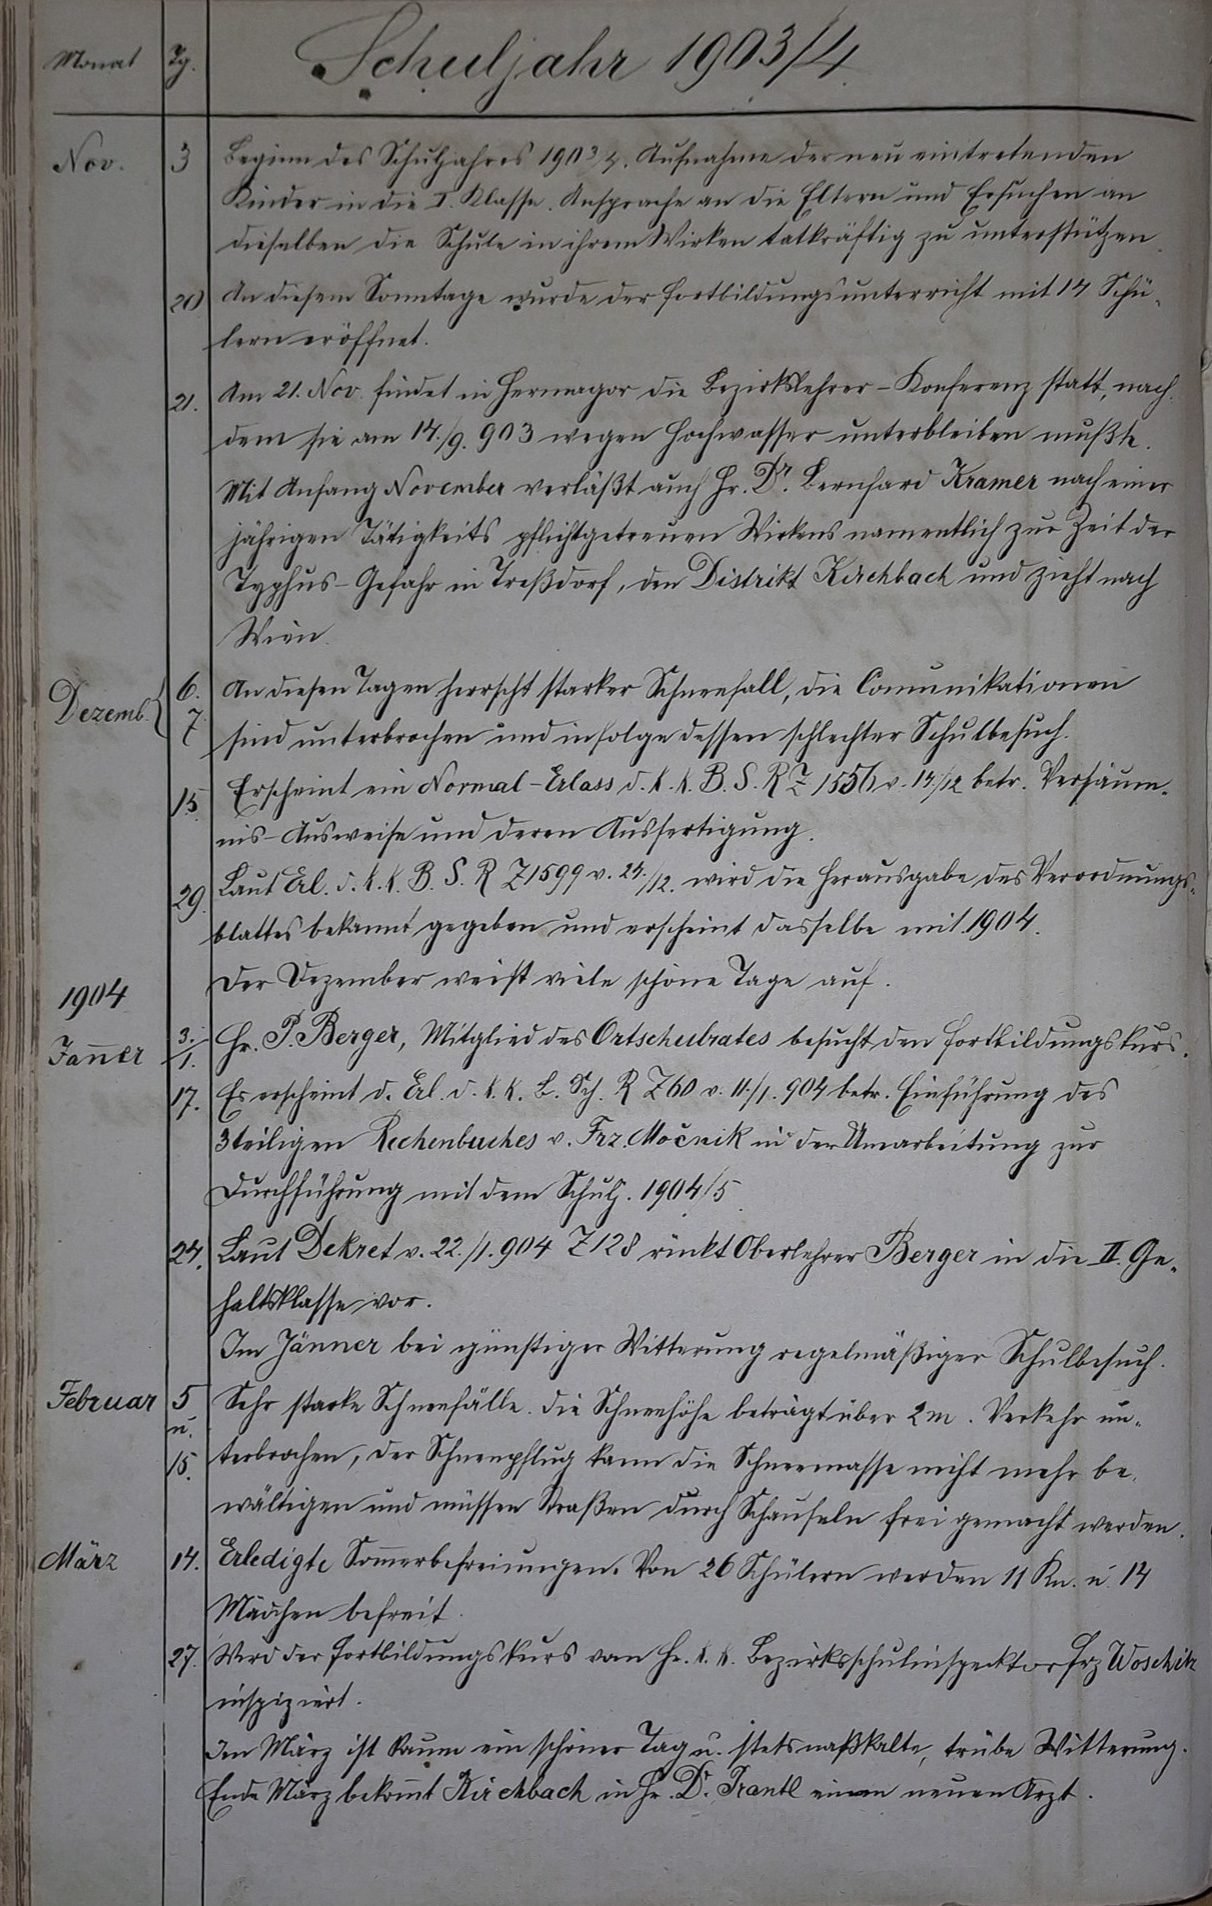 Monat Tg. Schuljahr 1903/4
Nov. 3 Beginn des Schuljahres 1903/4. Aufnahme der neu eintretenden
Kinder in die I. Klasse. Ansprache an die Eltern und Ersuchen an
dieselben die Schule in ihrem Wirken tatkräftig zu unterstützen.
20 An diesem Sonntage wurde der Fortbildungsunterricht mit 14 Schü-
lern eröffnet.
21. Am 21. Nov. findet in Hermagor die Bezirkslehrer-Konferenz statt, nach-
dem sie am 14./9. 903 wegen Hochwasser unterbleiben mußte.
Mit Anfang November verläßt auch Hr. Dr. Bernhard Kramer nach einer
jährigen Tätigkeits pflichtgetreuen Wirkens namentlich zur Zeit der
Typhus-Gefahr in Treßdorf, den Distrikt Kirchbach und zieht nach
Wien.
Dezemb. { 6. An diesen Tagen herrscht starker Schneefall, die Comunikationen
7 sind unterbrochen und infolge dessen schlechter Schulbesuch.
15. Erscheint ein Normal-Erlass d. k. k. B. S. R Z 1556 v. 14./12 betr. Versäum-
nis-Ausweise und deren Ausfertigung.
29. Laut Erl. d. k. k. B. S. R Z 1599 v. 24./12. wird die Herausgabe des Verordnungs-
blattes bekannt gegeben und erscheint dasselbe mit 1904.
Der Dezember weist viele schöne Tage auf.
1904
Jan̄er 3./1. Hr. P. Berger, Mitglied des Ortschulrates besucht den Fortbildungskurs.
17. Es erscheint d. Erl. d. k. k. B. Sch. R Z 60 v. 11./1. 904 betr. Einführung des
3teiligen Rechenbuches v. Frz. Močnik in der Umarbeitung zur
Durchführung mit dem Schulj. 1904/5.
24. Laut Dekret v. 22./1. 904 Z 128 rückt Oberlehrer Berger in die II. Ge-
haltsklasse vor.
Im Jänner bei günstiger Witterung regelmäßiger Schulbesuch.
Februar 5 Sehr starke Schneefälle. Die Schneehöhe beträgt über 2m. Verkehr un-
u. 15. terbrochen, der Schneepflug kann die Schneemasse nicht mehr be-
wältigen und müssen Straßen durch Schaufeln frei gemacht werden.
März 14. Erledigte Som̄erbefreiungen. Von 26 Schülern werden 11 Kn. u. 14
Mädchen befreit.
27. Wird der Fortbildungskurs vom Hr. k. k. Bezirksschulinspecktor Frz Woschitz
inspiziert.
Im März ist kaum ein schöner Tag u. stets naßkalte, trübe Witterung.
Ende März bekom̄t Kirchbach in Hr. Dr. Trantl einen neuen Arzt.